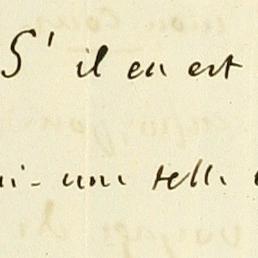 S'il en est
ni- une telle